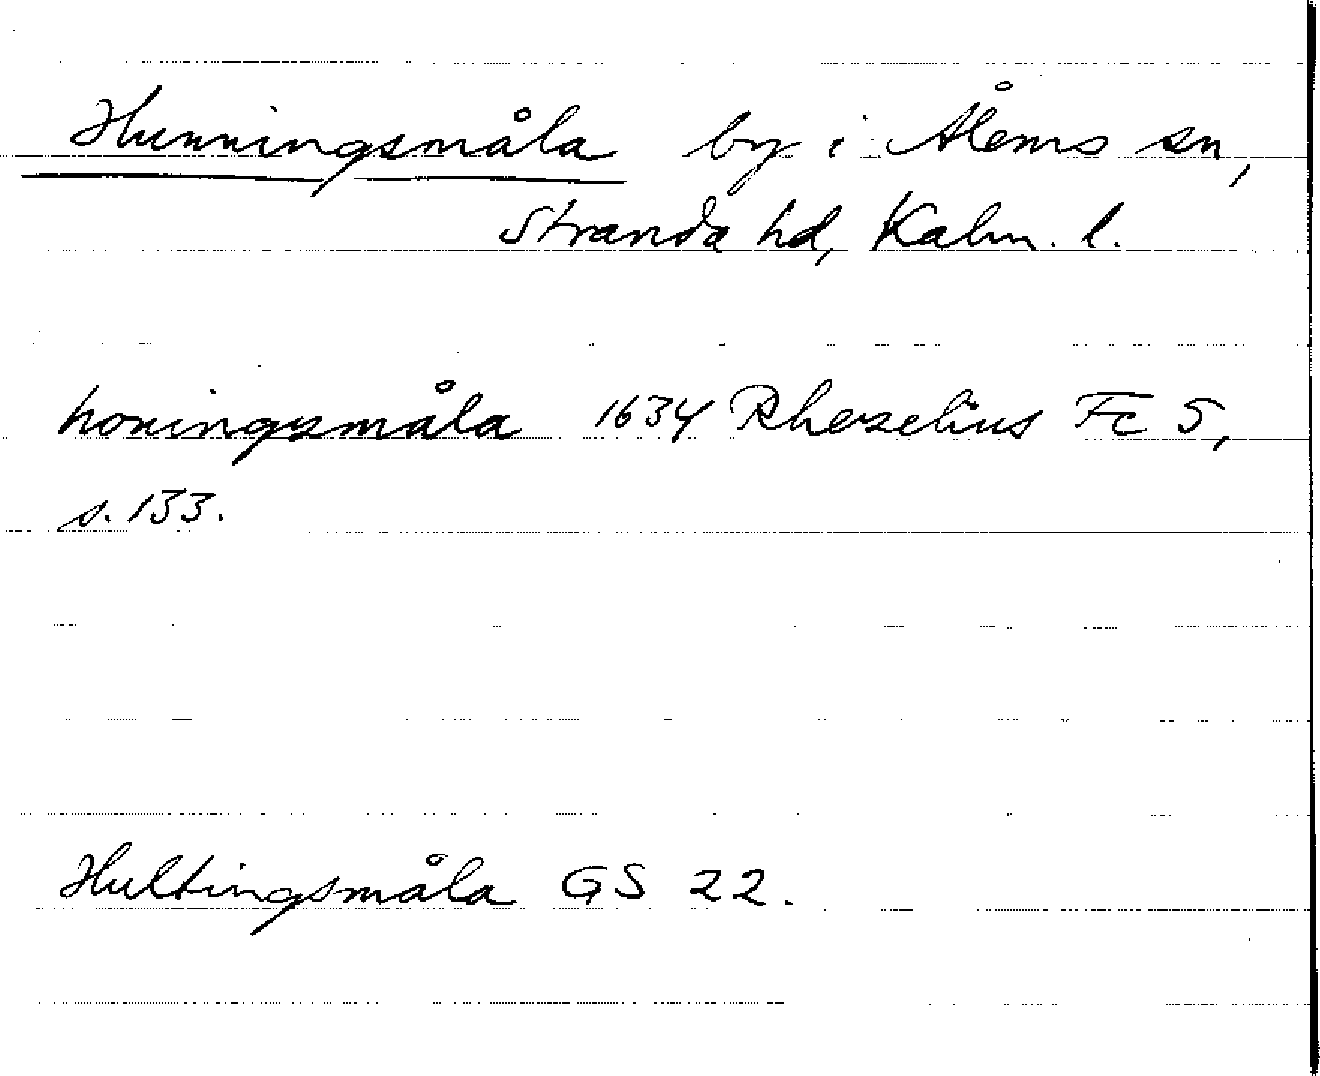 Hunningsmåla by i Ålems sn,
Stranda hd, Kalm. l.
honingsmåla 1634 Rhezelius Fc 5,
s. 133.
Hultingsmåla GS 22.